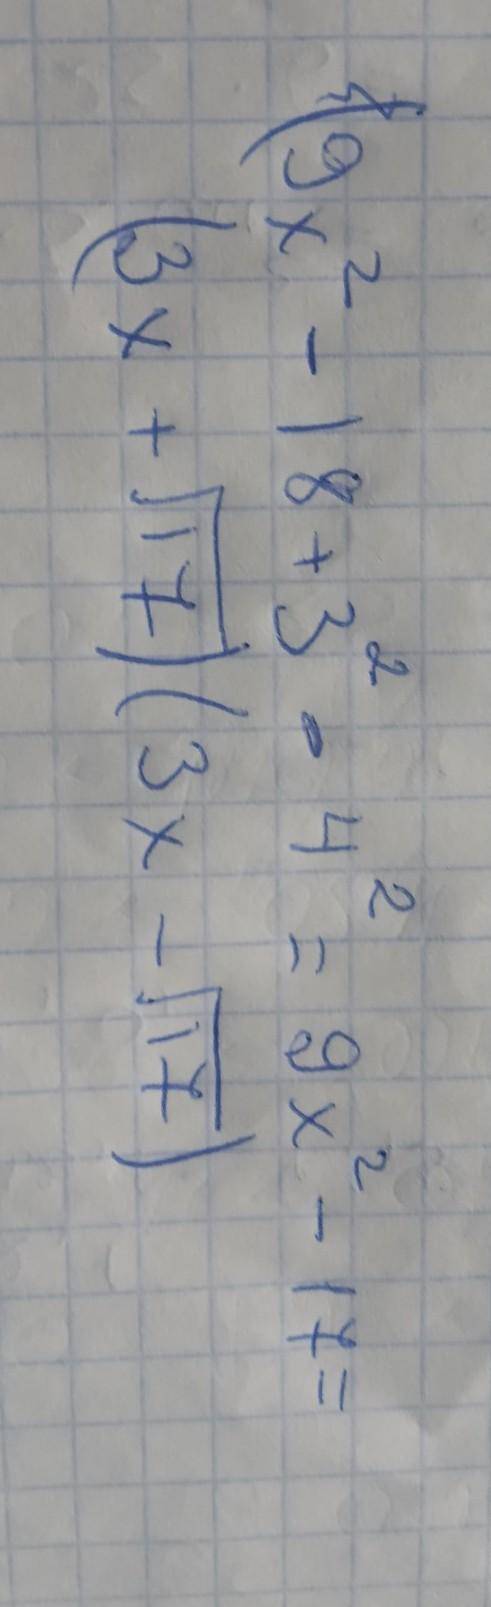 (9x² - 18 + 3² - 4² = 9x² - 17 =
(3x + √17)(3x - √17)